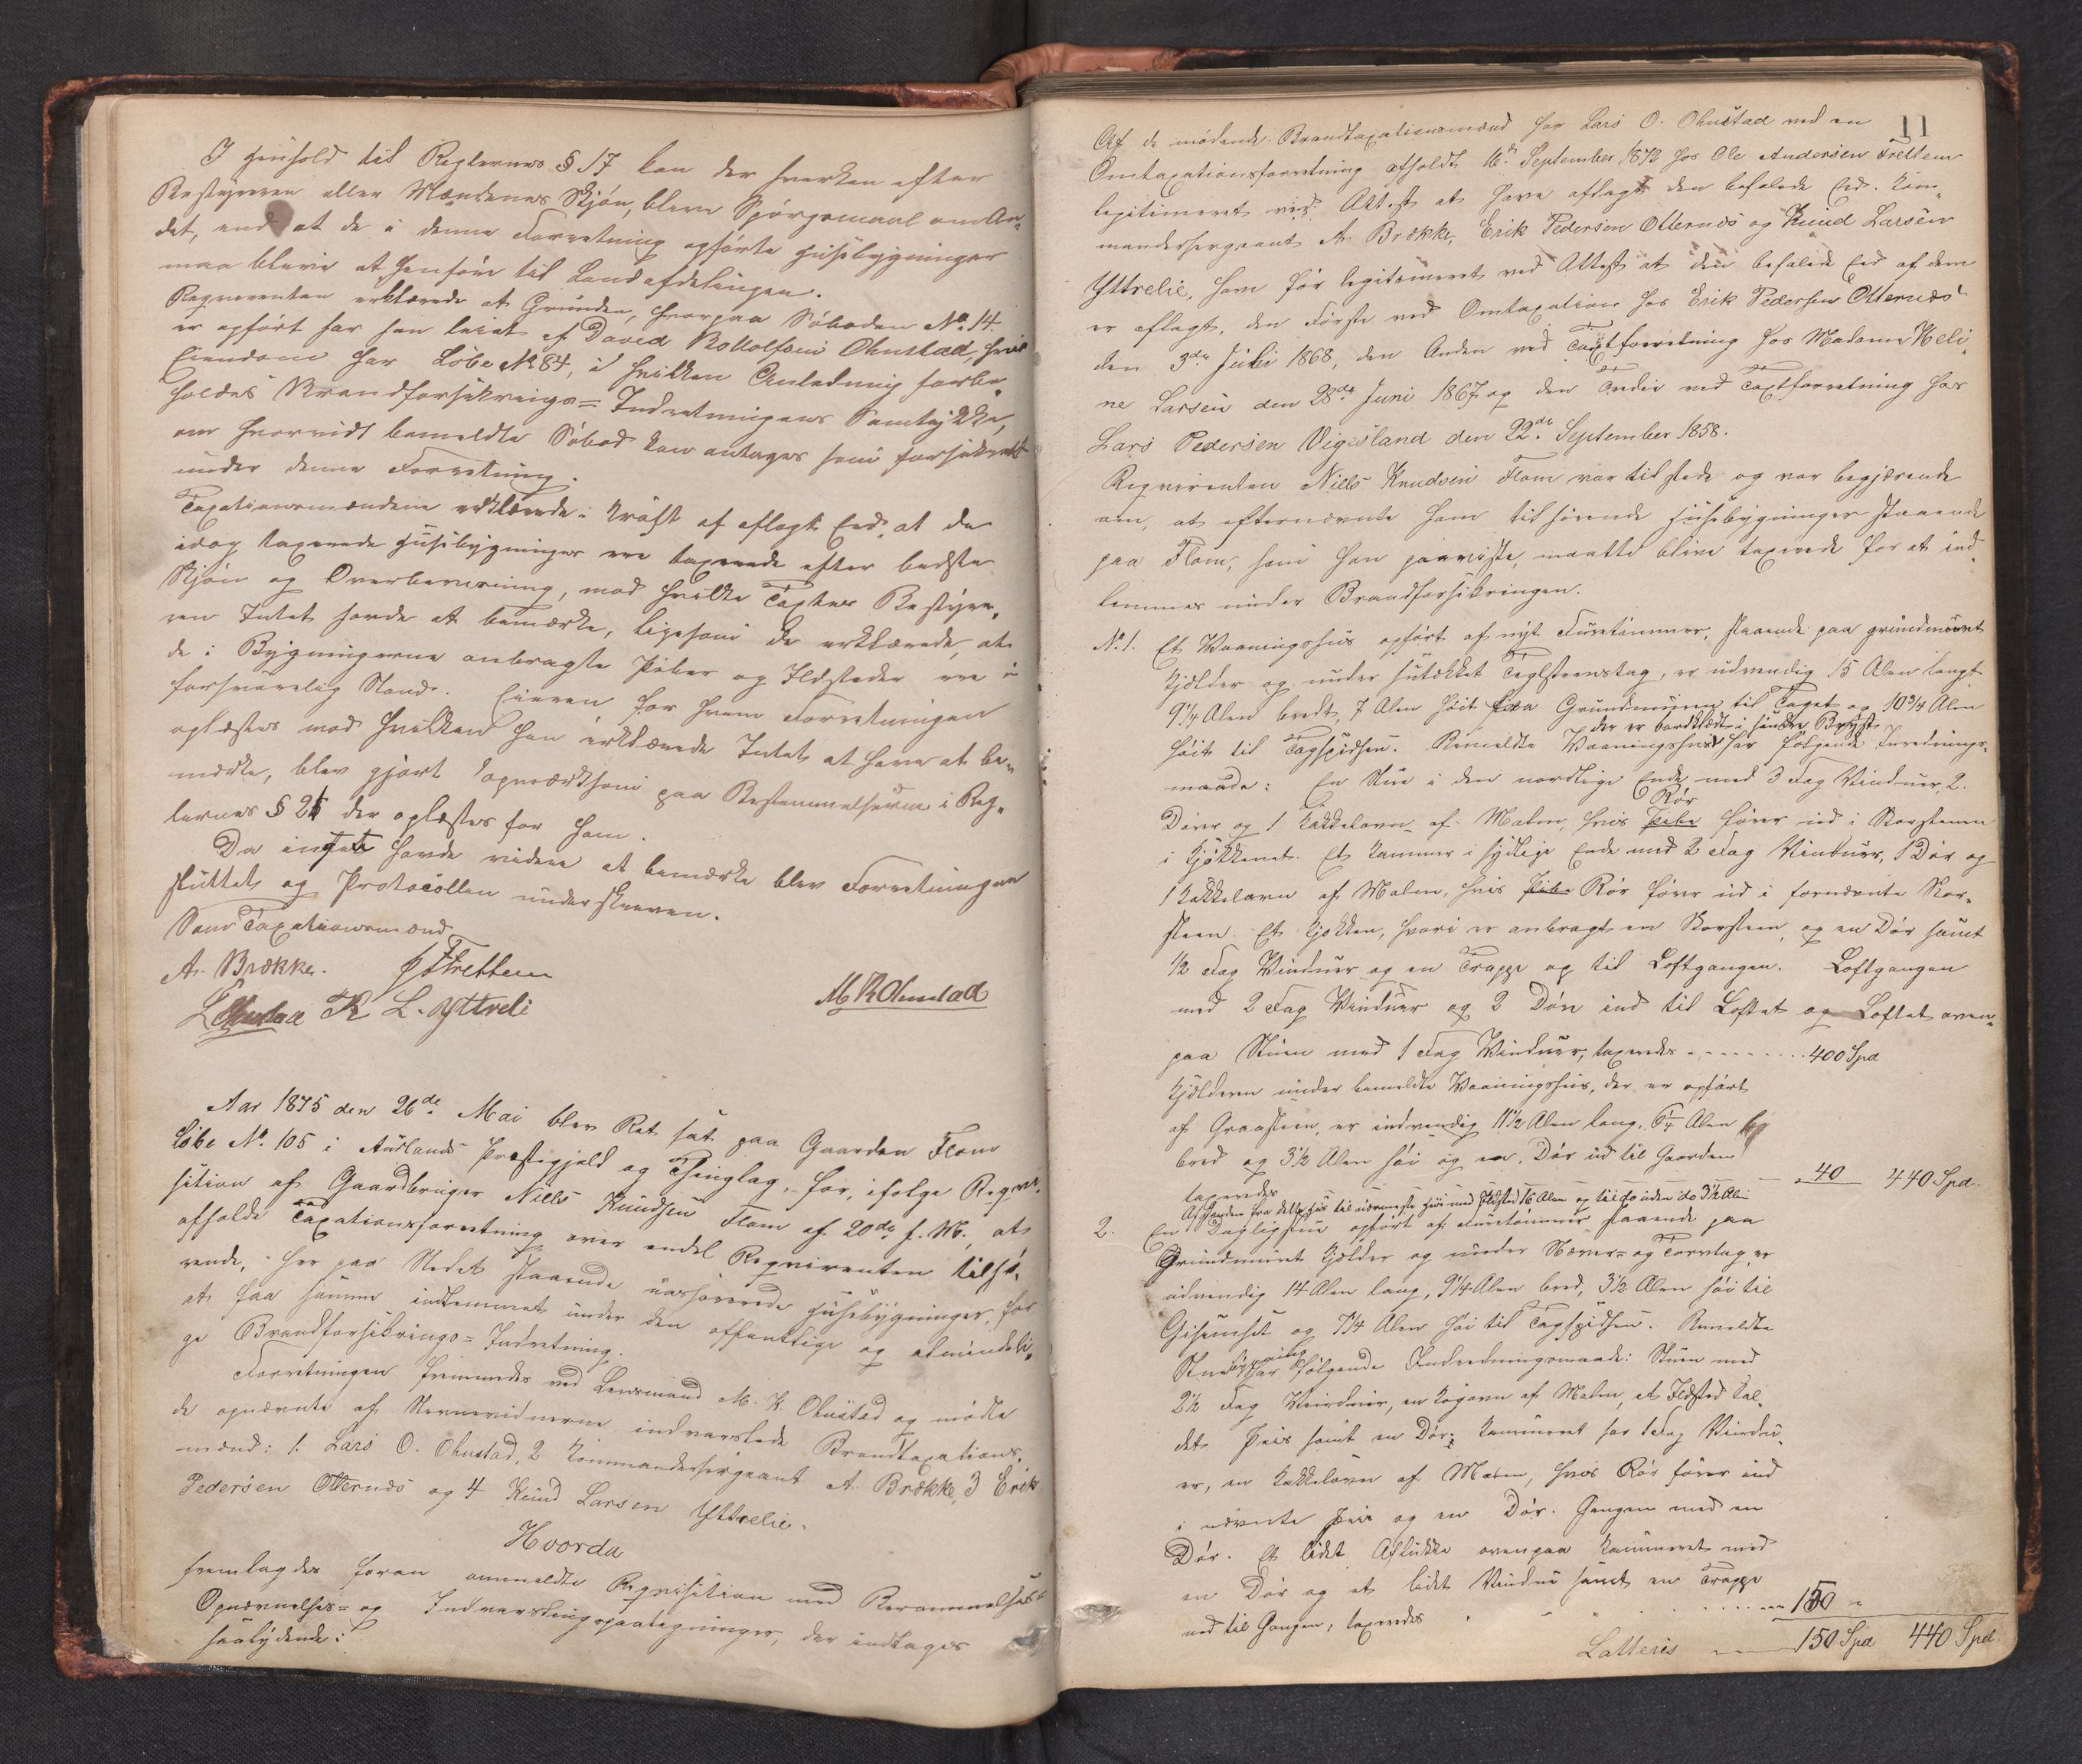 I Henhold til Reglernes § 17 kan der hverken efter
Bestyreren eller Mændenes Skjøn, blive Spørgsmaal om An-
det, end at de i denne Forretning opførte Husebygninger
maa blive at henføre til Landafdelingen.
Reqvirenten erklærede at Grunden, hvorpaa Søboden No. 14.
er opført har han leiet af David Rottolfsen Ohnstad, hvis
Eiendom har Løbe No 84, i hvilken Anledning forbe-
holdes Brandforsikrings-Indretningens Samtykke,
om hvorvidt bemeldte Søbod kan antages som forsikret
under denne Forretning.
Taxationsmændene erklærede i Kraft af aflagt Eed, at de
idag taxerede Husebygninger ere taxerede efter bedste
Skjøn og Overbeviisning, mod hvilke Taxter Bestyre-
ren Intet havde at bemærke, ligesom de erklærede, at
de i Bygningerne anbragte Piber og Ildsteder ere i
forsvarlig Stand. Eieren for hvem Forretningen
oplæstes mod hvilken han erklærede Intet at have at be-
mærke, blev gjort opmærksom paa Bestemmelserne i Reg-
lernes § 25 der oplæstes for ham.
Da ingen havde videre at bemærke blev Forretningen
sluttet og Protocollen underskreven.
Som Taxationsmænd
A. Brække. Frettem
L Ohnstad K L. Yttreli
M R Ohnstad
Aar 1875 den 26de Mai blev Ret sat paa Gaarden Flom
Løbe No. 105 i Aurlands Præstegjeld og Thinglag, for, ifølge Reqvi-
sition af Gaardbruger Nills Knudsen Flom af 20de f. M., at
afholde Taxationsforretning over endel Reqvirenten tilhø-
rende, her paa Stedet staaende uassurerede Husebygninger, for
at faa samme indlemmet under den offentlige og almindeli-
ge Brandforsikrings-Indretning.
Forretningen fremmedes ved Lensmand M. R. Ohnstad og mødte
de opnævnte af Stevnevidnerne indvarslede Brandtaxations-
mænd: 1. Lars O. Ohnstad, 2 Kommandersergeant A. Brække, 3 Erik
Pedersen Otternæs og 4 Knud Larsen Yttrelie.
Hvorda
fremlagdes foran ommeldte Reqvisition med Berammelses-
Opnævnelses- og Indvarslingspaategninger, der indtages
saalydende:
11
Af de mødende Brandtaxationsmænd har Lars O. Ohnstad ved en
Omtaxationsforretning afholdt 16de September 1872 hos Ole Andersen Frettem
legitimeret ved Attest at have aflagt den befalede Eed. Kom-
mandersergeant A. Brække, Erik Pedersen Otternæs og Knud Larsen
Yttrelie, have før legitimeret ved Attest at den befalede Eed af dem
er aflagt, den Første ved Omtaxation hos Erik Pedersen Otternæs
den 3de Juli 1868, den Anden ved Taxtforretning hos Madame Heli-
ne Larsen den 28de Juni 1867 og den Tredie ved Taxtforretning hos
Lars Pedersen Vigesland den 22de September 1858.
Reqvirenten Nills Knudsen Flom var tilstede og var begjærende
om, at efternævnte ham tilhørende Husebygninger staaende
paa Flom, som han paaviste, maatte blive taxerede for at ind-
lemmes under Brandforsikringen.
No. 1. Et Vaaningshus opført af nyt Furetømmer, staaende paa grundmuret
Kjælder og under sutækket Teglsteenstag, er udvendig 15 Alen langt
9 1/4 Alen bredt, 7 Alen høit fra Grundmuren til Taget og 10 3/4 Alen
der er bordklædt i søndre Bryst
høit til Tagspidsen. Bemeldte Vaaningshus har følgende Inrednings-
maade: En Stue i den nordlige Ende med 3 Fag Vinduer, 2.
Rør
Dører og 1 Kakkelovn af Malm, hvis Pibe fører ud i Skorstenen
i Kjøkkenet. Et Kammer i sydlige Ende med 2 Fag Vinduer, 1 Dør og
1 Kakkelovn af Malm, hvis Pibe Rør fører ud i fornævnte Skor-
steen. Et Kjøkken, hvori er anbragt en Skorsteen, og en Dør samt
1/2 Fag Vinduer og en Trappe op til Loftgangen. Loftgangen
med 2 Fag Vinduer og 2 Døre ind til Loftet og Loftet oven-
paa Stuen med 1 Fag Vinduer, taxeredes - - - - - 400 Spd
Kjælderen under bemeldte Vaaningshus, der er opført
af Graasteen, er indvendig 11 1/2 Alen lang, 6 1/4 Alen
bred og 3 1/2 Alen høi og en Dør ud til Gaarden
taxeredes 40 440 Spd.
Afstanden fra dette Hus til nærmeste Huse med Ildsted 16 Alen og til do uden do 3 1/2 Alen
2. En Dagligstue opført af Furetømmer staaende paa
Grundmuret Kjælder og under Næver- og Torvtag, er
udvendig 14 Alen lang, 9 1/4 Alen bred, 3 1/2 Alen høi til
Gesimset og 7 1/4 Alen høi til Tagspidsen. Bemeldte
Stuebygning har følgende Indredningsmaade: Stuen med
2 1/2 Fag Vinduer, en Kogovn af Malm, et Ildsted kal-
det Peis samt en Dør; Kammeret har 1 Fag Vindu-
er, en Kakkelovn af Malm, hvis Rør fører ind
i nævnte Peis og en Dør. Gangen med en
Dør. Et lidet Aflukke ovenpaa Kammeret med
en Dør og et lidet Vindue samt en Trappe
ned til Gangen, taxeredes - - - 150 "
Latteris - - 150 Spd 440 Spd.